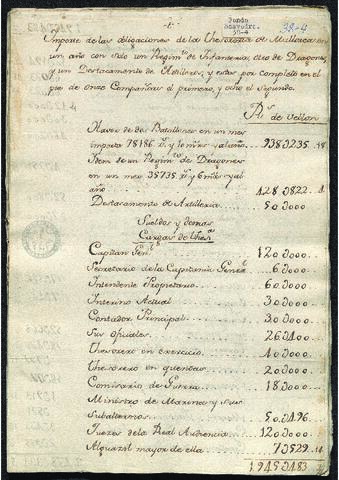 Fondo
Saavedra
39-4
39-4
Importe de las obligaciones de la Thesoreria de Mallorca en
un año con solo un Regim.to de Infanteria, otro de Dragones
y un Destacamento de Artilleros, y estar por completo en el
pie de onze Compañias el primero, y ocho el segundo.
R.s de vellon
Haver de dos Batallones en un mes
importa 78186 r.v y 10 mrs y al año 938D235..18
Idem de un Regim.to de Dragones
en un mes 35735 r.v y 6 mrs y al
año 428D822..4
Destacamento de Artilleria 50D000
Sueldos y demas
Cargas de Thes.a
Capitan Gen.l 120D000
Secretario de la Capitania Gener.l 6D000
Intendente Propietario 60D000
Interino Actual 30D000
Contador Principal 30D000
Sus oficiales 26D400
Thesorero en exercicio 40D000
Thesorero en quentas 20D000
Comisario de Guerra 18D000
Ministro de Marina y sus
Subalternos 50D496
Juezes de la Real Audiencia 120D000
Alguazil mayor de ella 7D529
1945D483